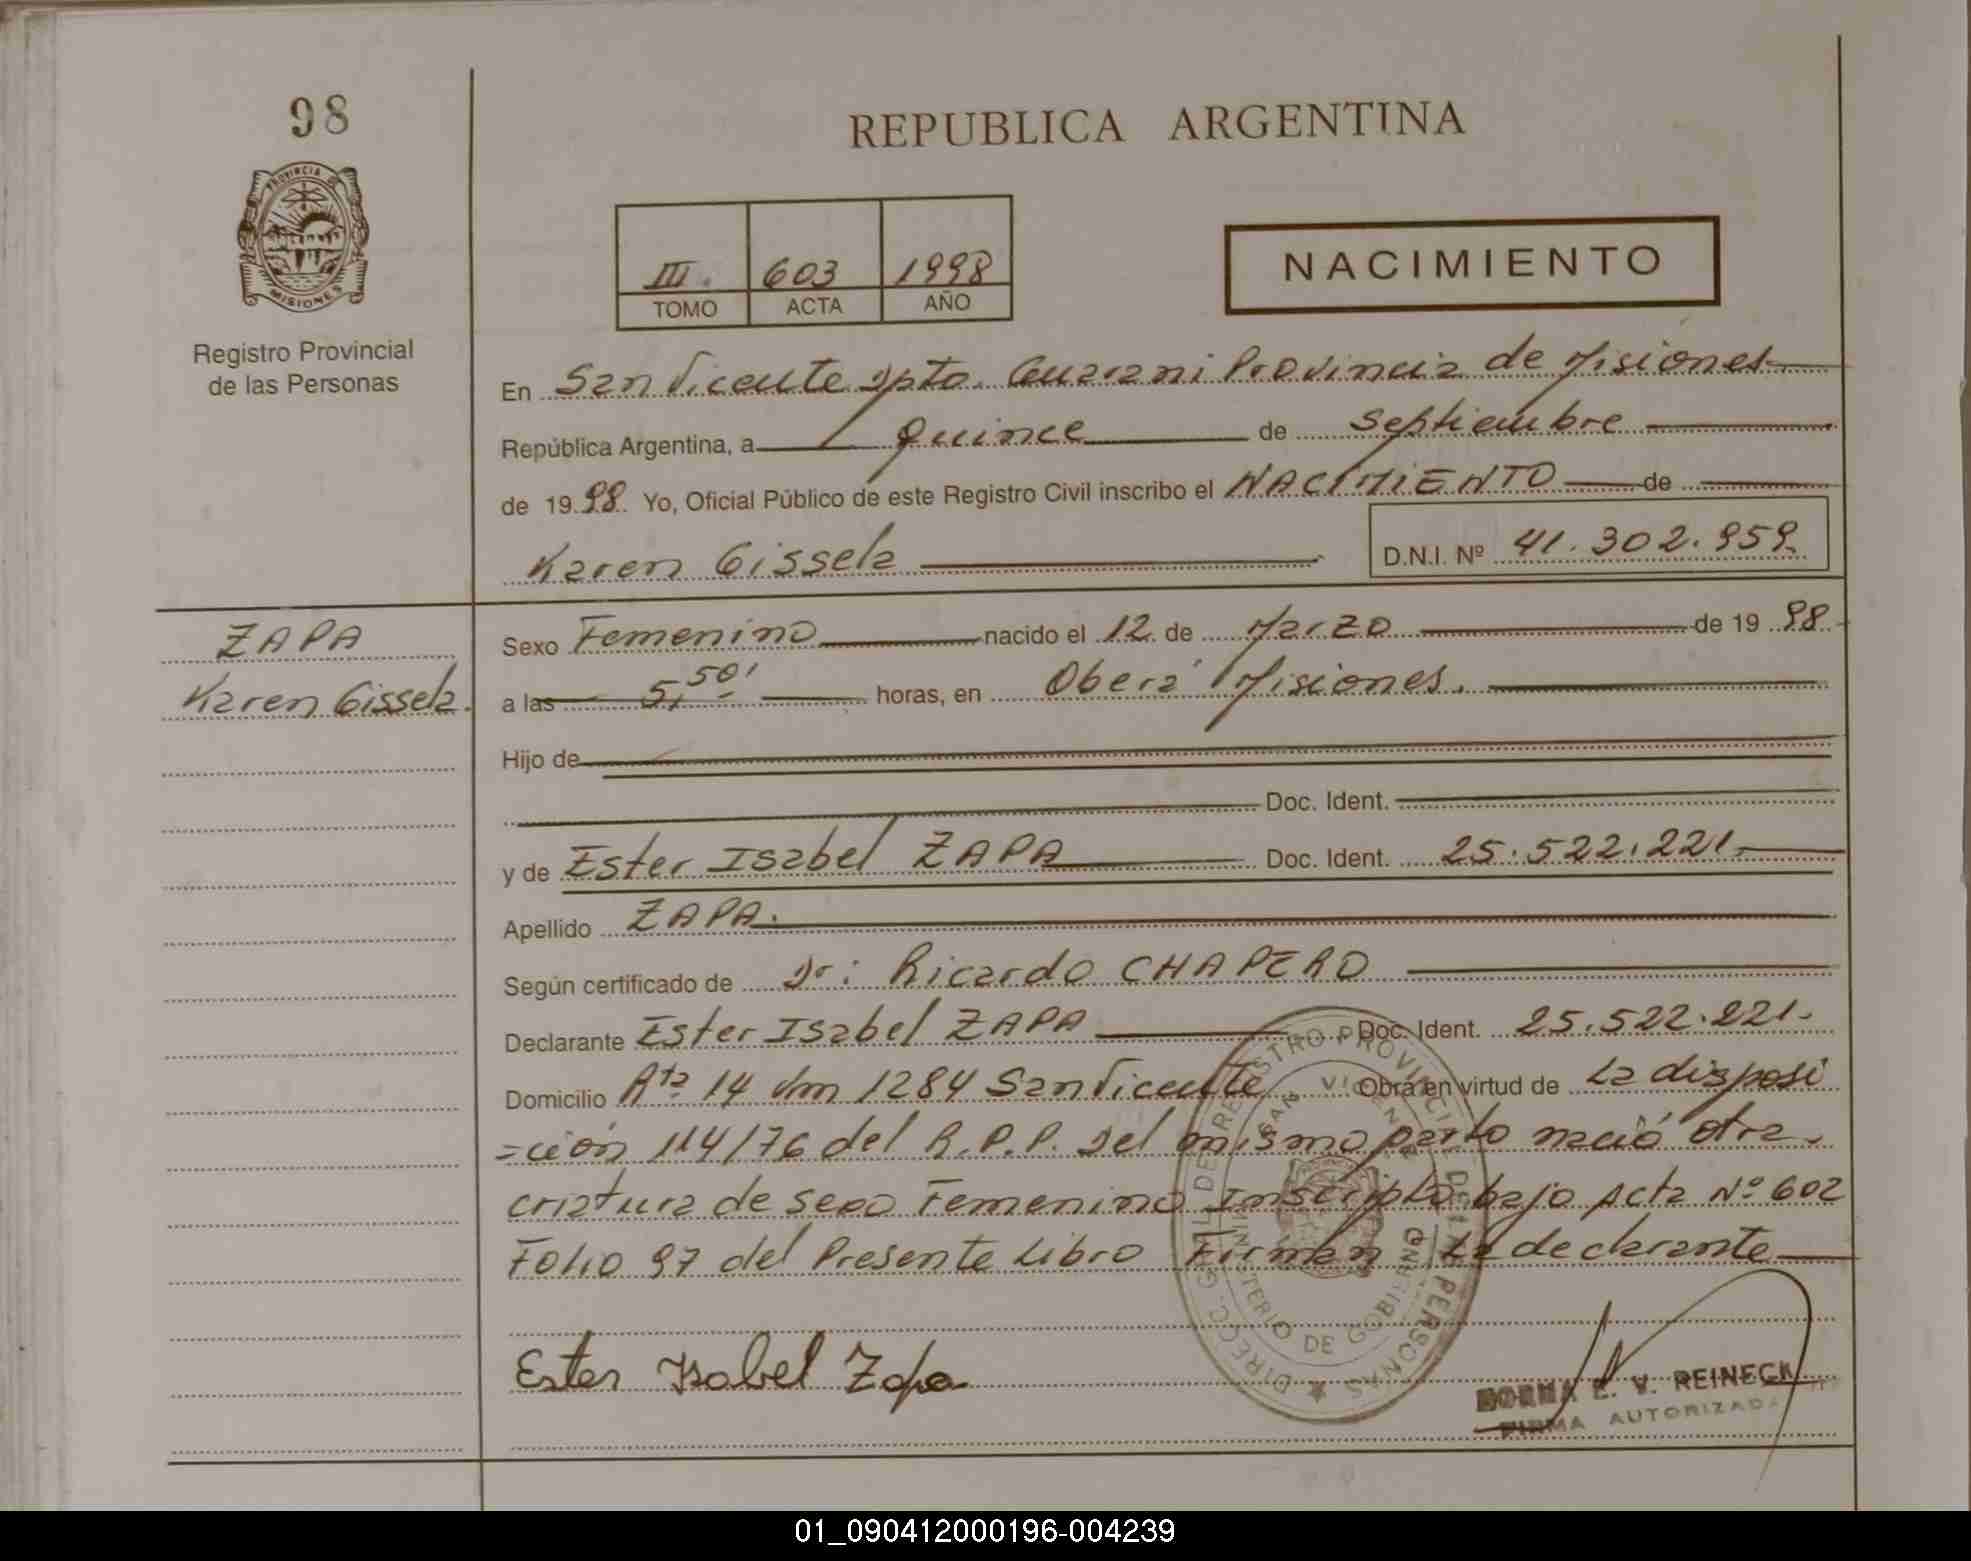 98
REPUBLICA ARGENTINA
PROVINCIA DE
MISIONES
Registro Provincial
de las Personas
III. 603 1998
TOMO ACTA AÑO
NACIMIENTO
En San Vicente Dpto. Guarani Provincia de Misiones
República Argentina, a Quince de Septiembre
de 1998. Yo, Oficial Público de este Registro Civil inscribo el NACIMIENTO de
Karen Gissela D.N.I. Nº 41.302.959.
ZAPA
Karen Gissela.
Sexo Femenino nacido el 12 de Marzo de 1998
a las 5,50' horas, en Oberá Misiones.
Hijo de
Doc. Ident.
y de Ester Isabel ZAPA Doc. Ident. 25.522.221.
Apellido ZAPA.
Según certificado de Dr: Ricardo CHAPERO
Declarante Ester Isabel ZAPA Doc. Ident. 25.522.221.
Domicilio Rta 14 Km 1284 San Vicente Obra en virtud de La disposi
=ción 114/76 del R.P.P. Del mismo parto nació otra
criatura de sexo Femenino Inscripto bajo Acta Nº 602
Folio 97 del Presente Libro Firman La declarante
Ester Isabel Zapa
DIRECC. GRAL DE REGISTRO PROVINCIAL DE LAS PERSONAS
SAN VICENTE
MINISTERIO DE GOBIERNO
E. V. REINECK
FIRMA AUTORIZADA
01_090412000196-004239